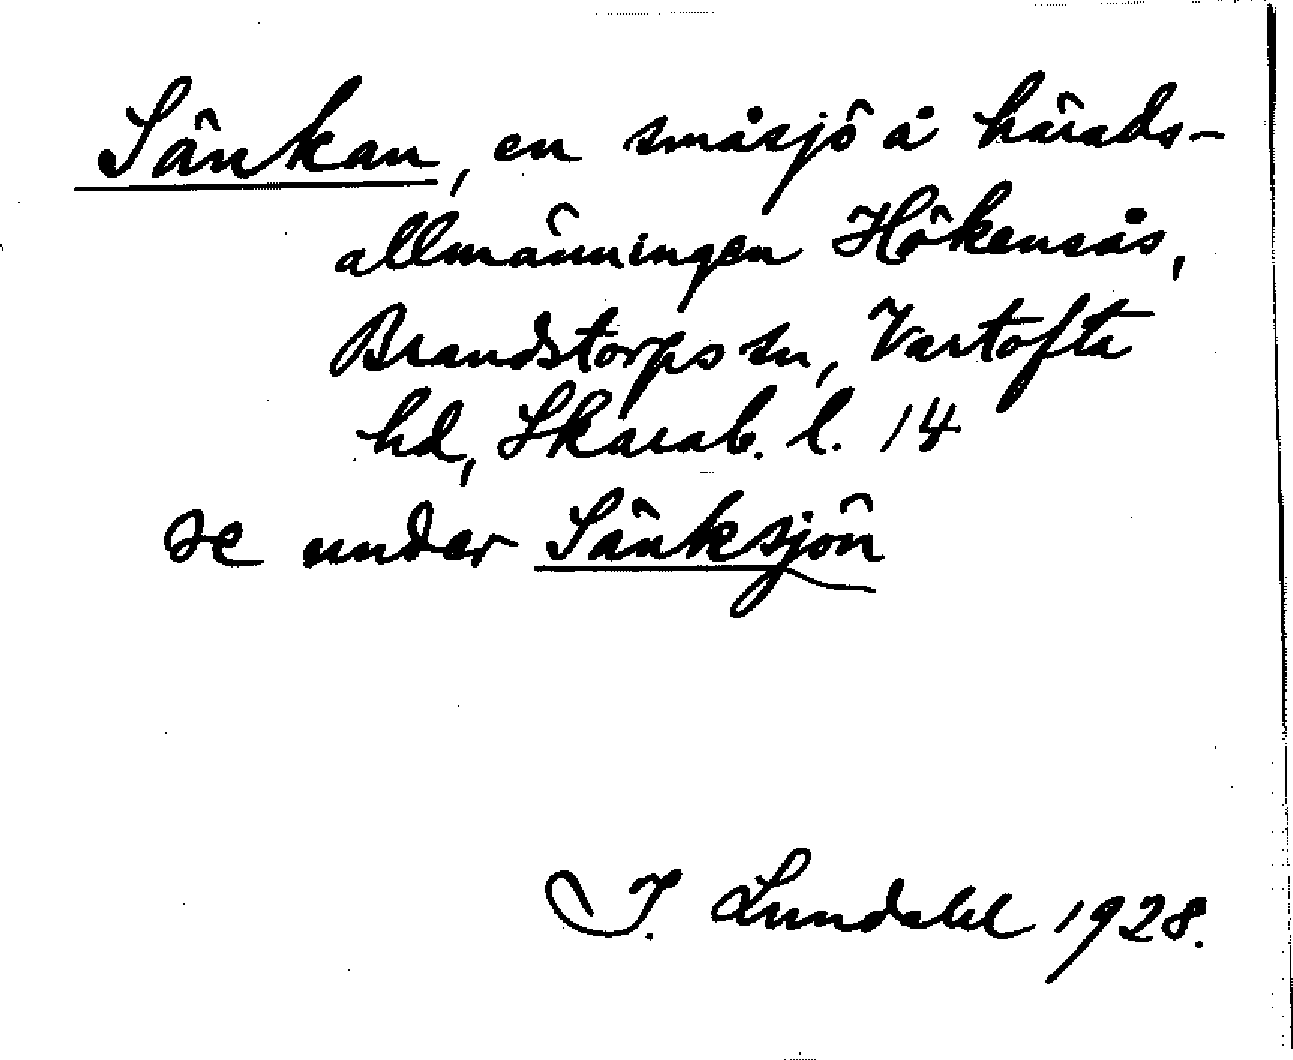 Sänkan, en småsjö å härads-
allmänningen Hökensås,
Brandstorps sn, Vartofta
hd, Skarab. l. 14
se under Sänksjön
I. Lundahl 1928.